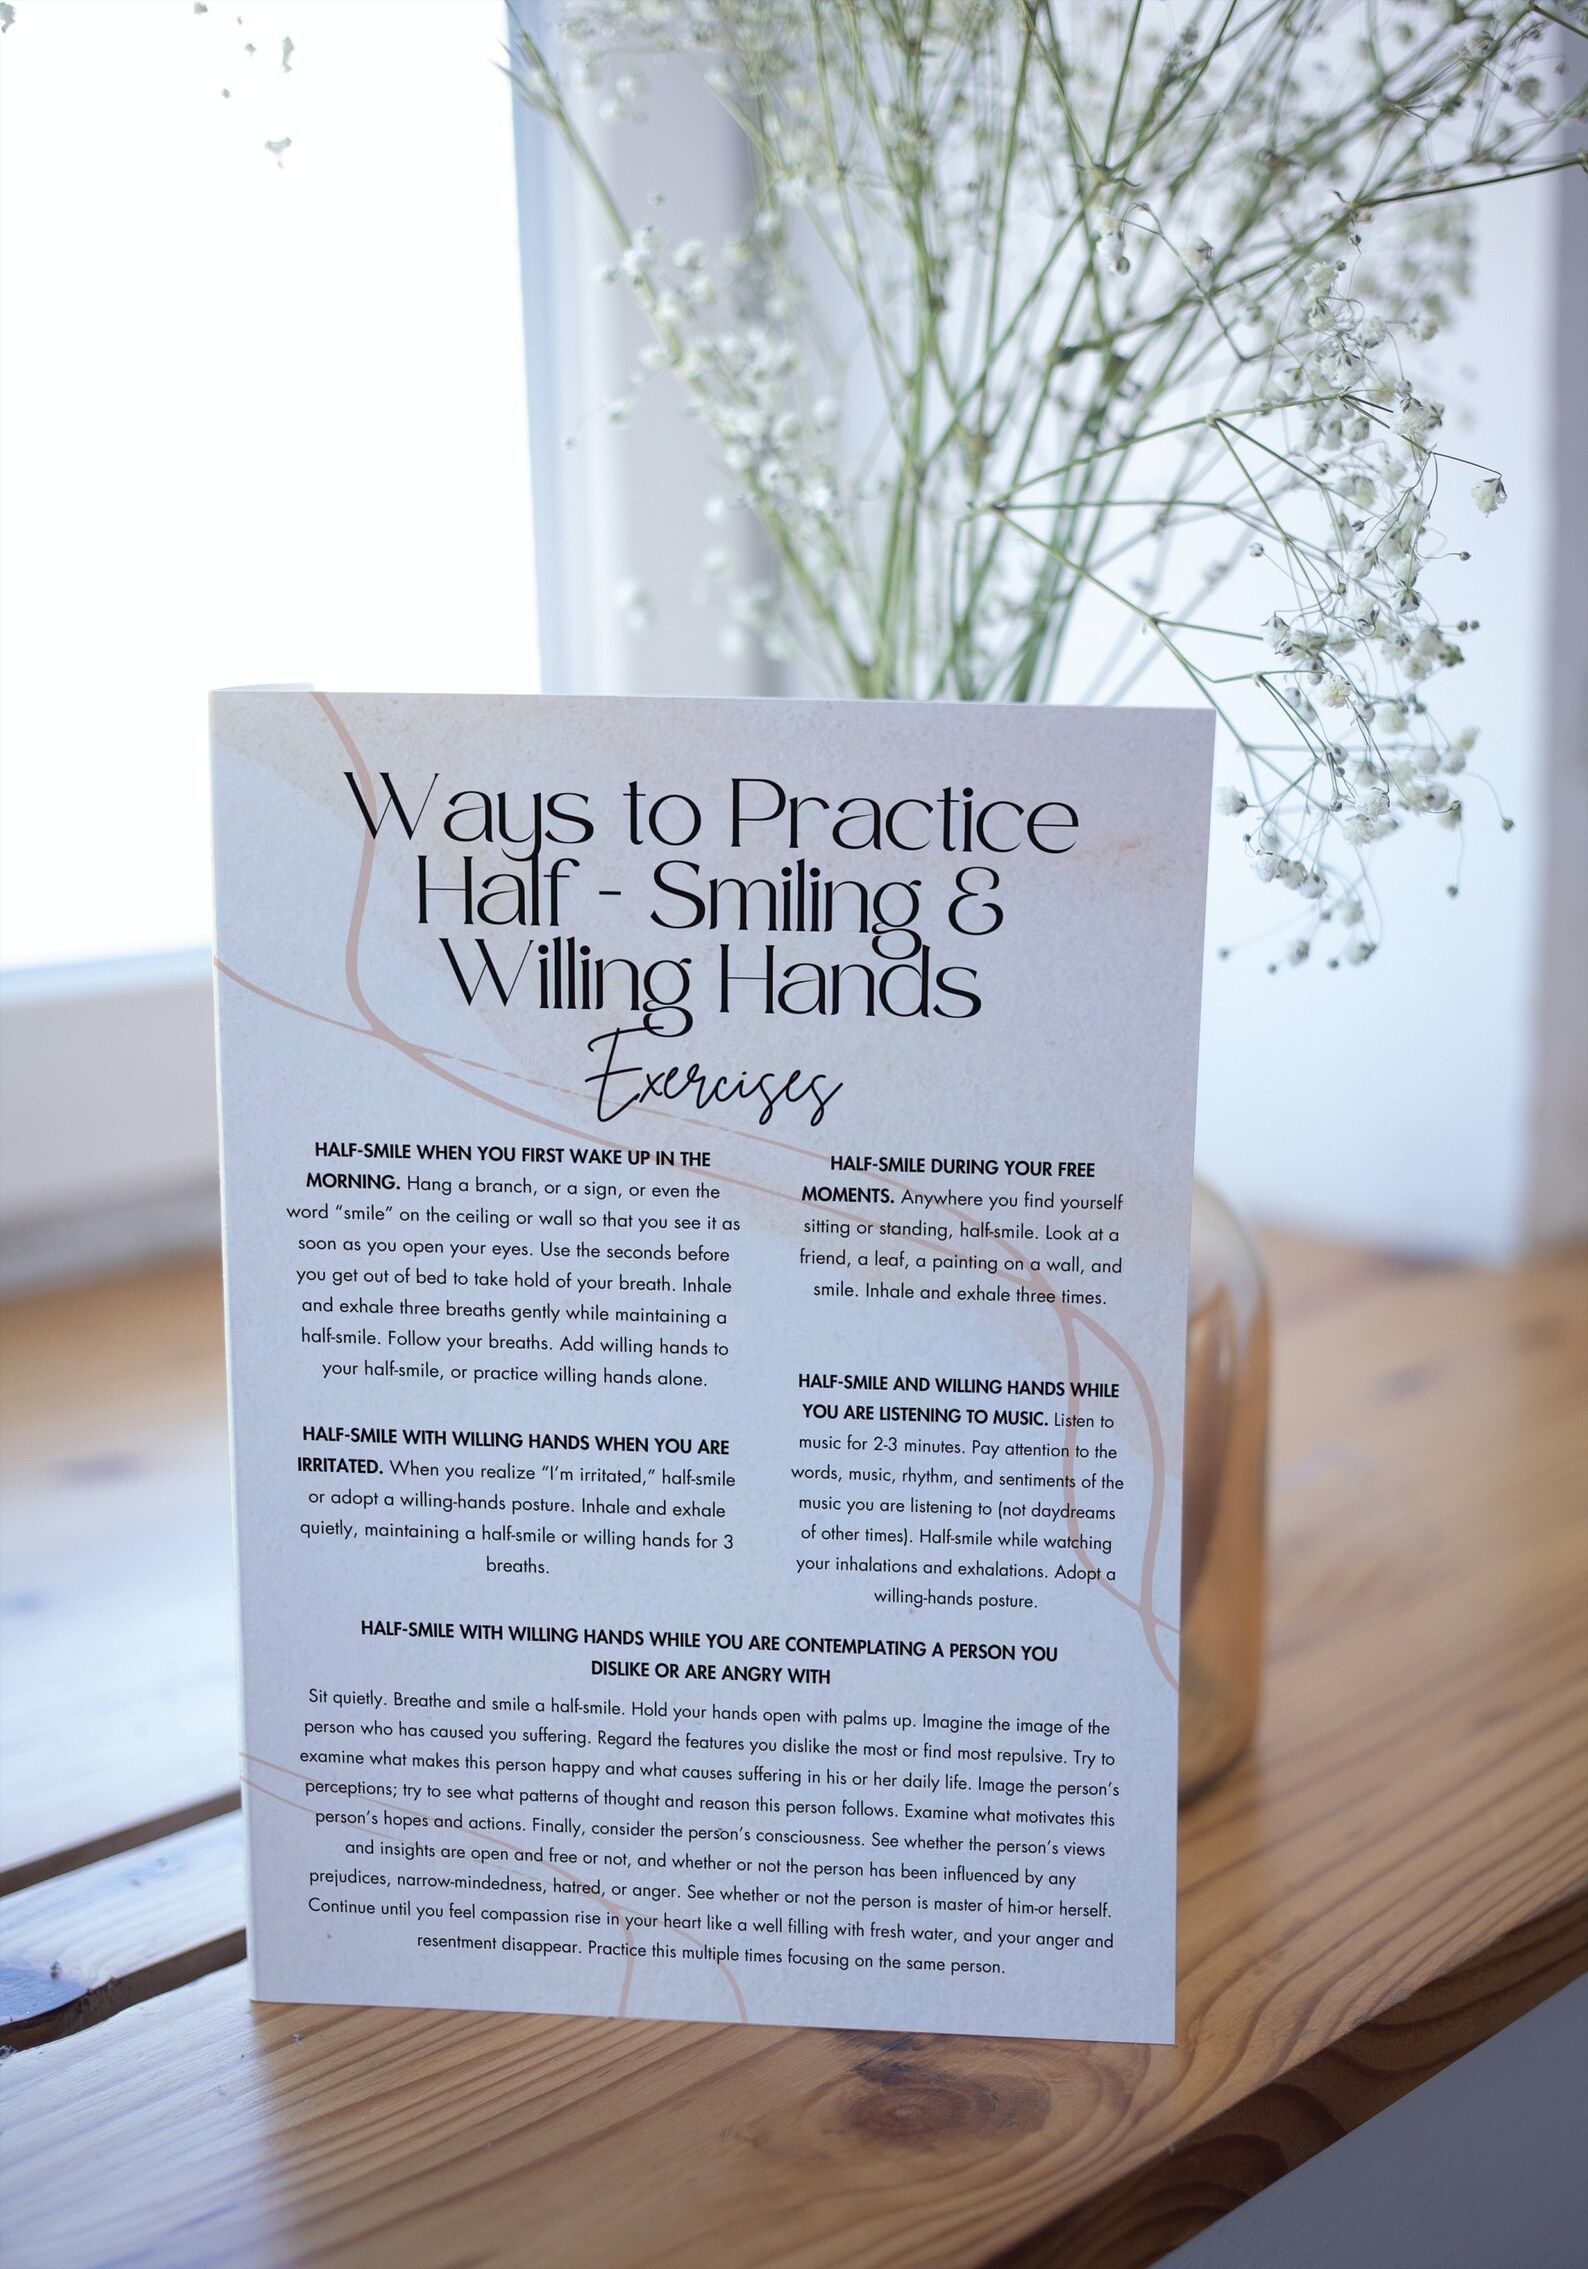 Ways to Practice
Half - Smiling &
Willing Hands
Exercises
HALF-SMILE WHEN YOU FIRST WAKE UP IN THE
MORNING. Hang a branch, or a sign, or even the
word “smile” on the ceiling or wall so that you see it as
soon as you open your eyes. Use the seconds before
you get out of bed to take hold of your breath. Inhale
and exhale three breaths gently while maintaining a
half-smile. Follow your breaths. Add willing hands to
your half-smile, or practice willing hands alone.
HALF-SMILE WITH WILLING HANDS WHEN YOU ARE
IRRITATED. When you realize “I’m irritated,” half-smile
or adopt a willing-hands posture. Inhale and exhale
quietly, maintaining a half-smile or willing hands for 3
breaths.
HALF-SMILE DURING YOUR FREE
MOMENTS. Anywhere you find yourself
sitting or standing, half-smile. Look at a
friend, a leaf, a painting on a wall, and
smile. Inhale and exhale three times.
HALF-SMILE AND WILLING HANDS WHILE
YOU ARE LISTENING TO MUSIC. Listen to
music for 2-3 minutes. Pay attention to the
words, music, rhythm, and sentiments of the
music you are listening to (not daydreams
of other times). Half-smile while watching
your inhalations and exhalations. Adopt a
willing-hands posture.
HALF-SMILE WITH WILLING HANDS WHILE YOU ARE CONTEMPLATING A PERSON YOU
DISLIKE OR ARE ANGRY WITH
Sit quietly. Breathe and smile a half-smile. Hold your hands open with palms up. Imagine the image of the
person who has caused you suffering. Regard the features you dislike the most or find most repulsive. Try to
examine what makes this person happy and what causes suffering in his or her daily life. Image the person’s
perceptions; try to see what patterns of thought and reason this person follows. Examine what motivates this
person’s hopes and actions. Finally, consider the person’s consciousness. See whether the person’s views
and insights are open and free or not, and whether or not the person has been influenced by any
prejudices, narrow-mindedness, hatred, or anger. See whether or not the person is master of him-or herself.
Continue until you feel compassion rise in your heart like a well filling with fresh water, and your anger and
resentment disappear. Practice this multiple times focusing on the same person.